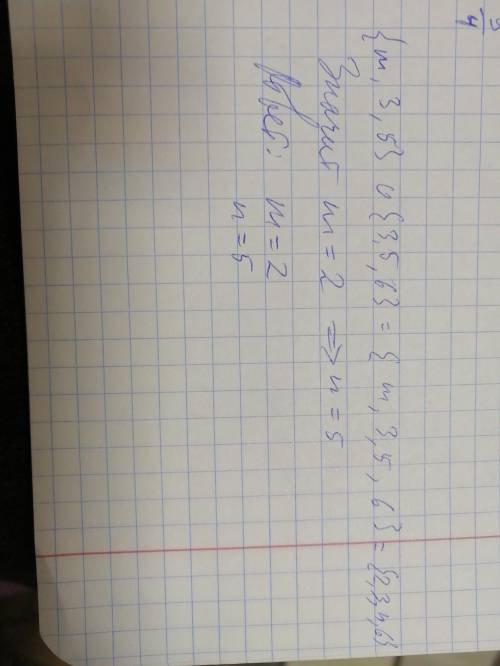 5/4
{m, 3, 5} ∪ {3, 5, 6} = { m, 3, 5, 6} = {2,3,n,6}
Значит m = 2 ⇒ n = 5
Ответ: m = 2
n = 5